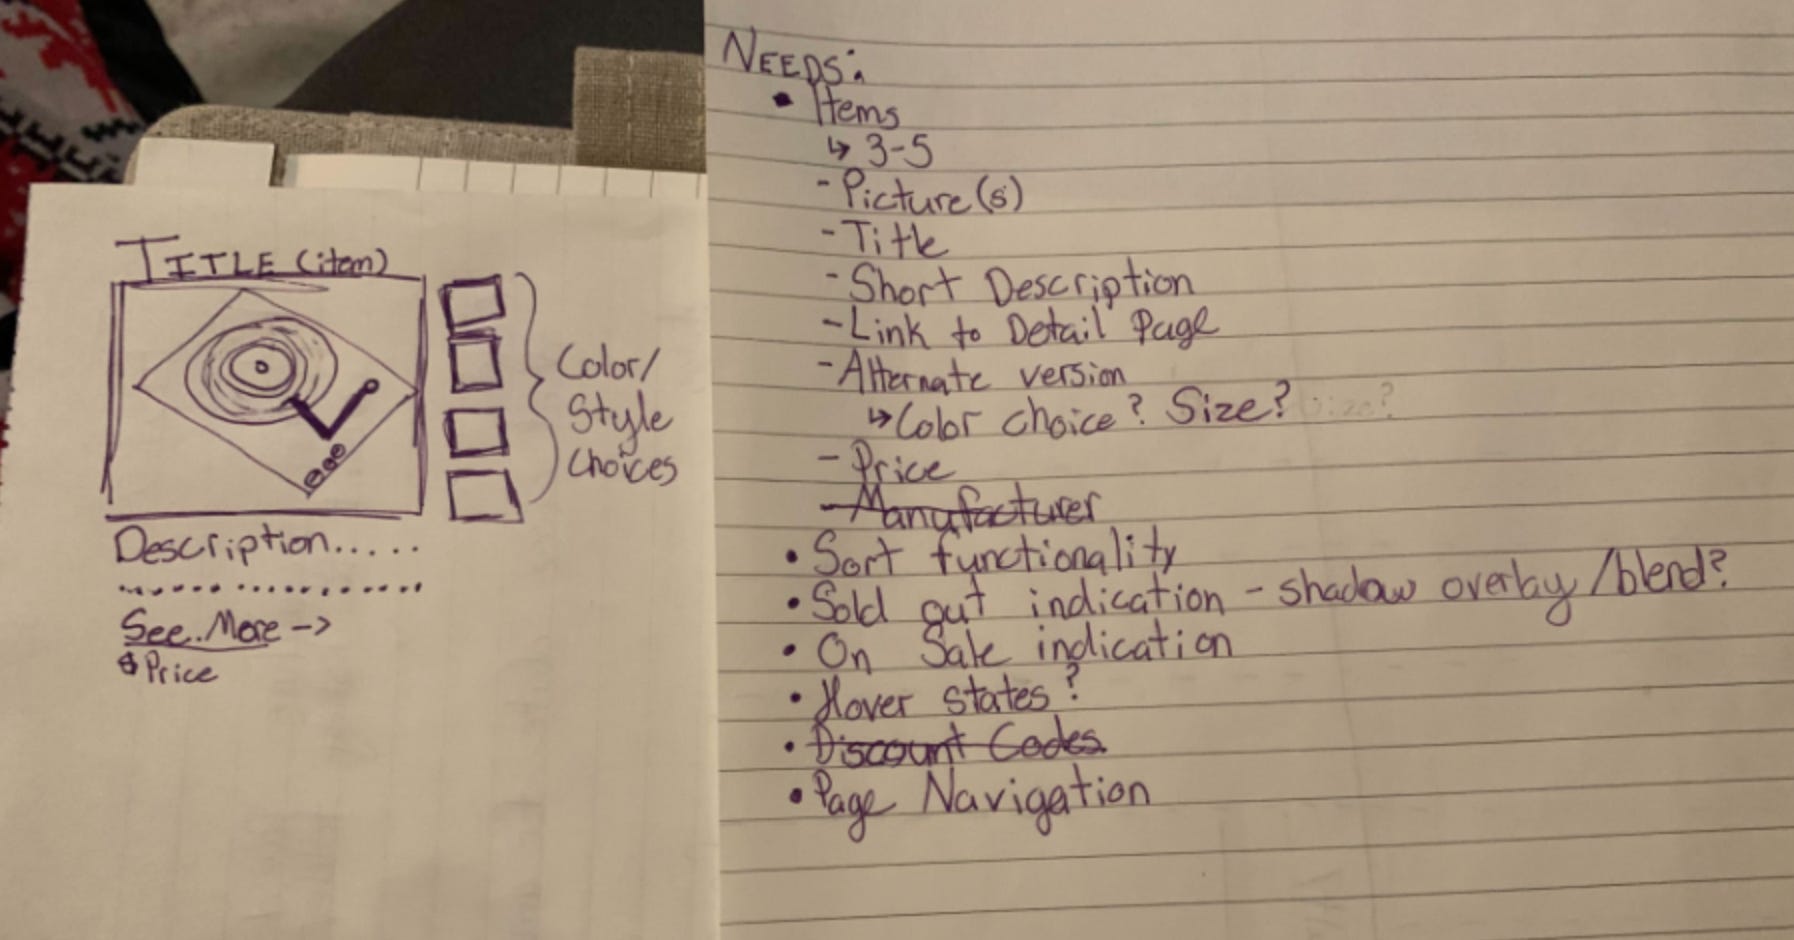 TITLE (item)
Color/
Style
Choices
Description.....
See..More ->
$Price
NEEDS:
• Items
↳ 3-5
- Picture(s)
- Title
- Short Description
- Link to Detail Page
- Alternate version
↳ Color choice? Size? Size?
- Price
- Manufacturer
• Sort functionality
• Sold out indication - shadow overlay/blend?
• On Sale indication
• Hover states?
• Discount Codes.
• Page Navigation